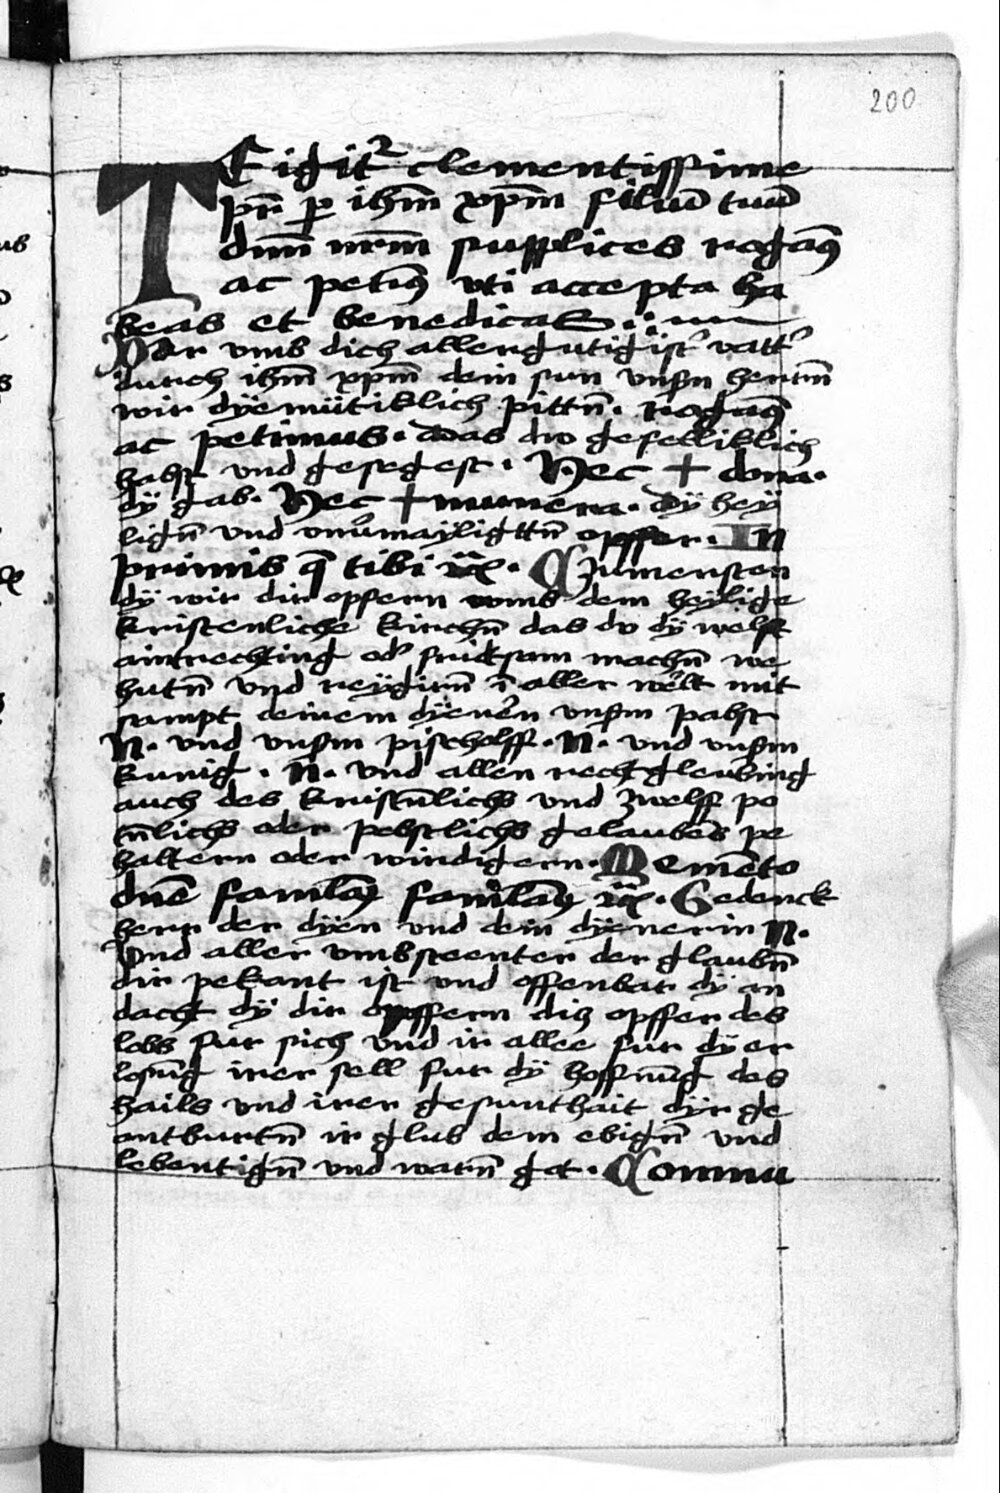 200
TE igit᷑ clementissime
pr̄ p̲ ihm̄ xp̄m filiū tuū
dn̄m nr̄m supplices rogam⁹
ac petim⁹ vti accepta ha
beas et benedicas
Dar vmb dich allergutigist᷑ vatt᷑
durch ihm̄ xp̄m dein sun vnsꝑn herrn̄
wir dÿemütiklich pittn̄. Rogam⁹
ac petimus. das du gefelliklich
habst und gesegest. Hec + dona.
dÿ gab. Hec + munera. dÿ hey
lign̄ vnd vnu᷑mayligttn̄ opffer. In
primis q̄ tibi rc̄. Zumersten
dÿ wir dir opfern vmb dein heylige
kristenliche kirchn̄ das du dÿ welst
aintrechting od᷑ fridsam machn̄ we
hutn̄ vnd reÿgirn̄ ī aller welt mit
sampt deinem dÿener̄n vnsꝑm pabst
N. vnd vnsꝑm pischolff. N. vnd vnsꝑm
kunig. N. vnd allen rechtgleubing
auch des kristn̄lichs vnd zwelff po
tn̄lichs oder pebstlichs gelaubēs pe
haltern oder wirdigern. Memēto
dn̄e famlor̄ famlar̄ rc̄. Gedenck
herr der dÿen vnd dein dÿenerin N.
Vnd aller vmbsteenter der glaubn̄
dir pekant ist vnd offenbar dÿ an
dacht dÿ dir opffern diz opffer des
lobs fur sich vnd ir allee fur dÿ er
losūg irer sell fur dÿ hoffnūg des
hails vnd irer gesunthait dÿr ge
antburtn̄ ir glub dem ebign̄ vnd
lebentign̄ vnd warn̄ got. Commu